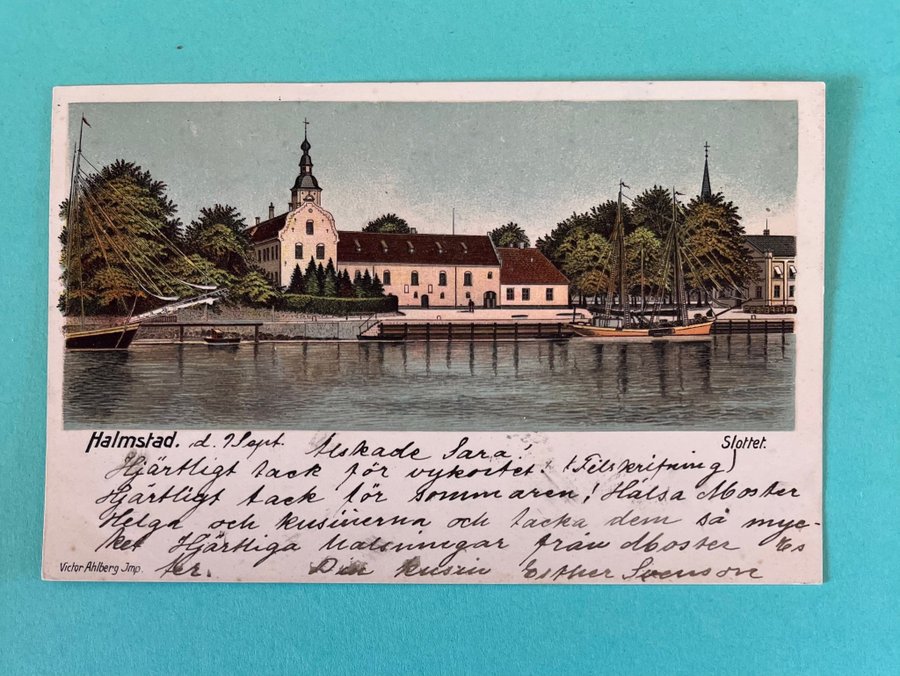 Halmstad. d. 9 Sept. Älskade Sara! Slottet.
Hjärtligt tack för vykortet! (Felskrifning)
Hjärtligt tack för sommaren! Hälsa Moster
Helga och kusinerna och tacka dem så myc-
ket Hjärtliga Hälsningar från Moster Es
ter. Din kusin Esther Svenson
Victor Ahlberg Imp.